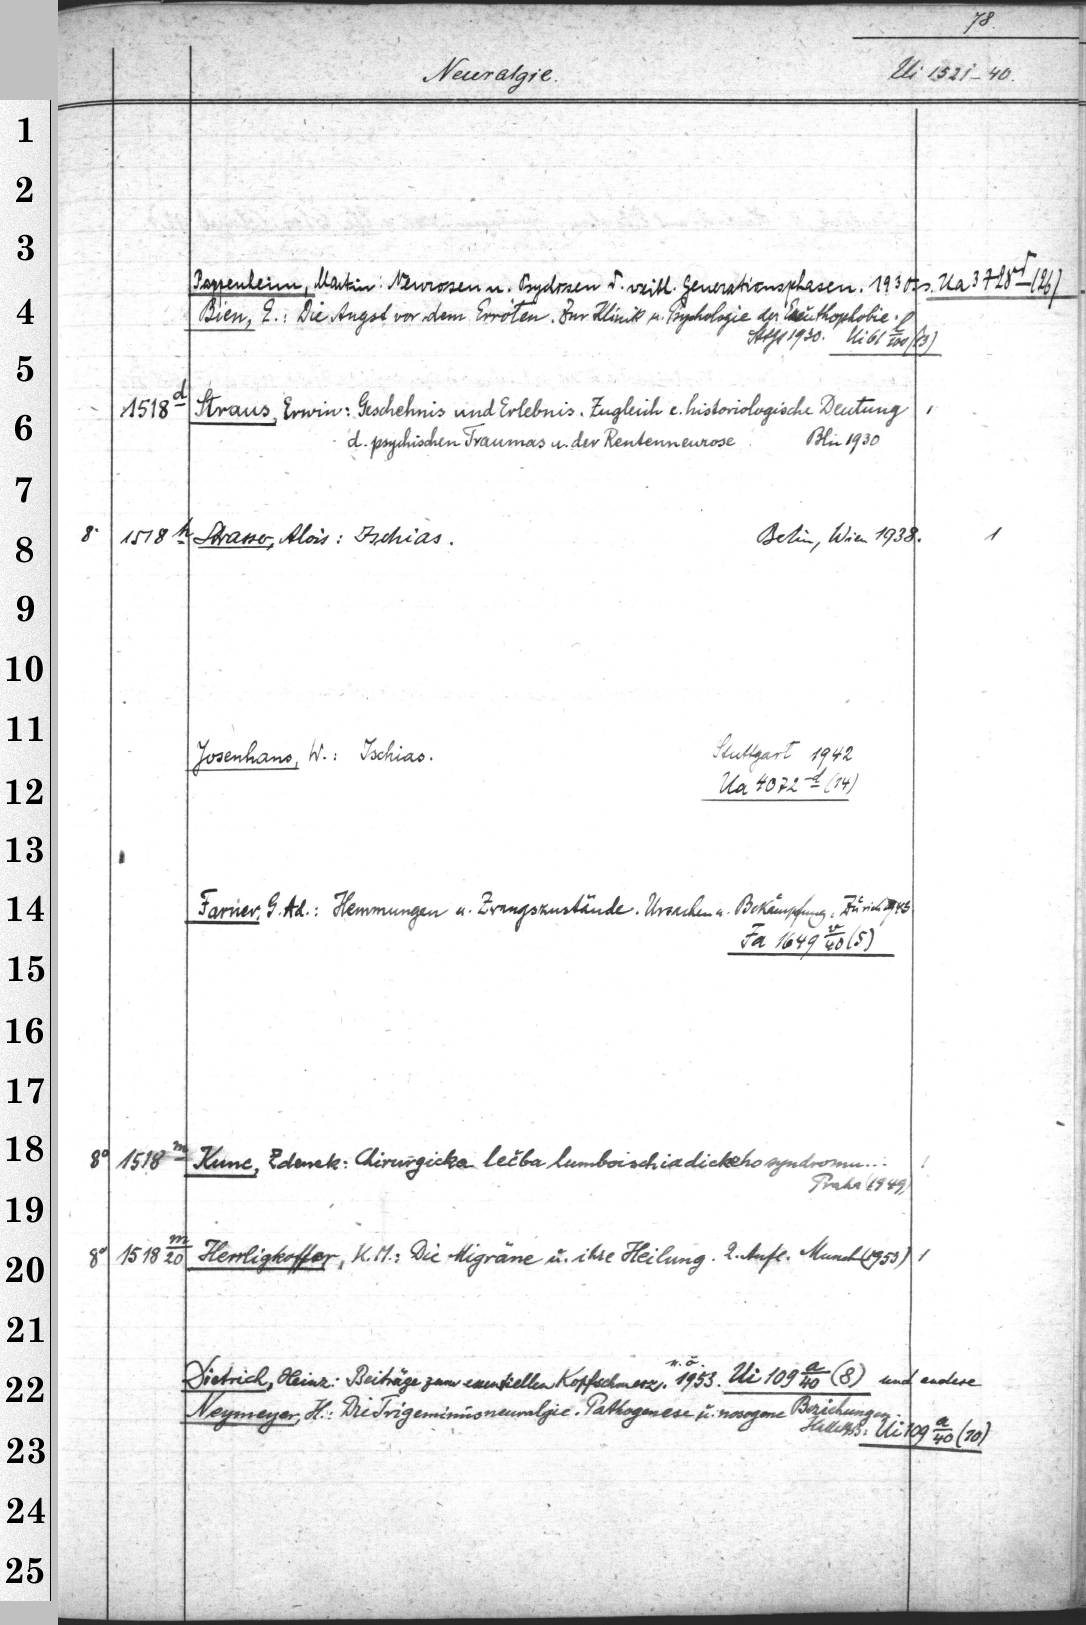 78.
Neuralgie. Ui 1521-40.
1
2
3
Pappenheim, Martin: Neurosen u. Psychosen d. weibl. Generationsphasen. 1930 Ua 3728 (26)
4 Bien, E.: Die Angst vor dem Erröten. Zur Klinik u. Psychologie der Ereuthophobie.
Sttgt 1930. Ui 61 (13)
5
1518 d Straus, Erwin: Geschehnis und Erlebnis. Zugleich e. historiologische Deutung 1
6 d. psychischen Traumas u. der Rentenneurose Blin 1930
7
8 8° 1518 h Strasser, Alois: Ischias. Berlin, Wien 1938. 1
9
10
11
Josenhans, W.: Ischias. Stuttgart 1942
12 Ua 4072 d (14)
13
14 Farner, G. Ad.: Hemmungen u. Zwangszustände. Ursachen u. Bekämpfung. Zürich 1943
Fa 1649 v/40 (5)
15
16
17
18 8° 1518 m Kunc, Zdenek: Chirurgicka lečba lumboischiadickeho syndromu... 1
Praha (1949)
19
20 8° 1518 m/20 Herrligkoffer, K. M.: Die Migräne u. ihre Heilung. 2. Aufl. Münch (1953) 1
21
n. ö.
22 Dietrich, Heinz: Beiträge zum essentiellen Kopfschmerz. 1953. Ui 109 a/40 (8) und andere
Neymeyer, H.: Die Trigeminusneuralgie. Pathogenese u. nosogene Beziehungen.
23 Ui 109 a/40 (10)
24
25